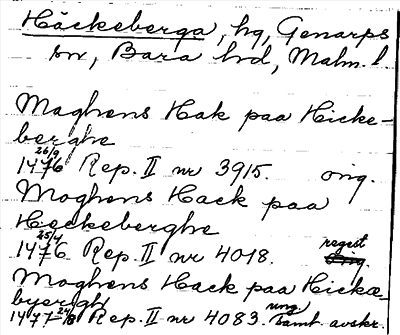 Häckeberga, hg, Genarps
sn, Bara hd, Malm. l
Maghens Hak paa Hicke-
berghe
1476 26/9 Rep. II nr 3915. orig.
Moghens Hack paa
Heckeberghe
1476 25/4 Rep. II nr 4018. regest
Moghens Hack paa Hickæ-
byergh
1477 24/8 Rep. II nr 4083 ung. samt. avskr.